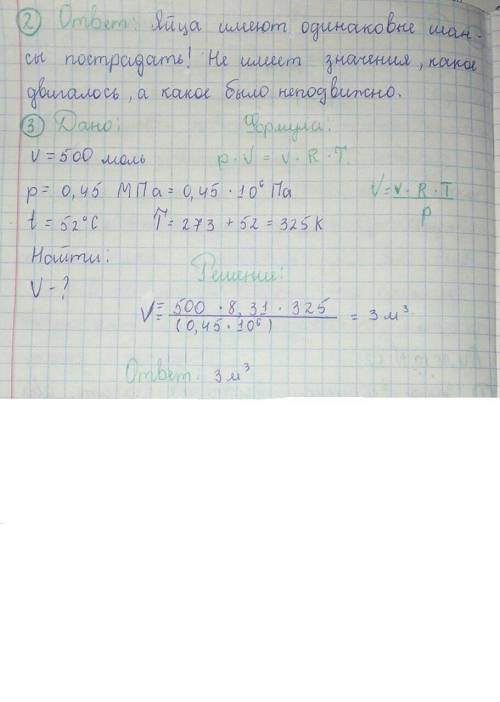 ② Ответ: Яйца имеют одинаковые шан-
сы пострадать! Не имеет значения, какое
двигалось, а какое было неподвижно.
③ Дано: Формула:
ν = 500 моль p · V = ν · R · T
p = 0,45 МПа = 0,45 · 10⁶ Па V = ν · R · T / p
t = 52°C T = 273 + 52 = 325 К
Найти:
V - ? Решение:
V = 500 · 8,31 · 325 / (0,45 · 10⁶) = 3 м³
Ответ. 3 м³